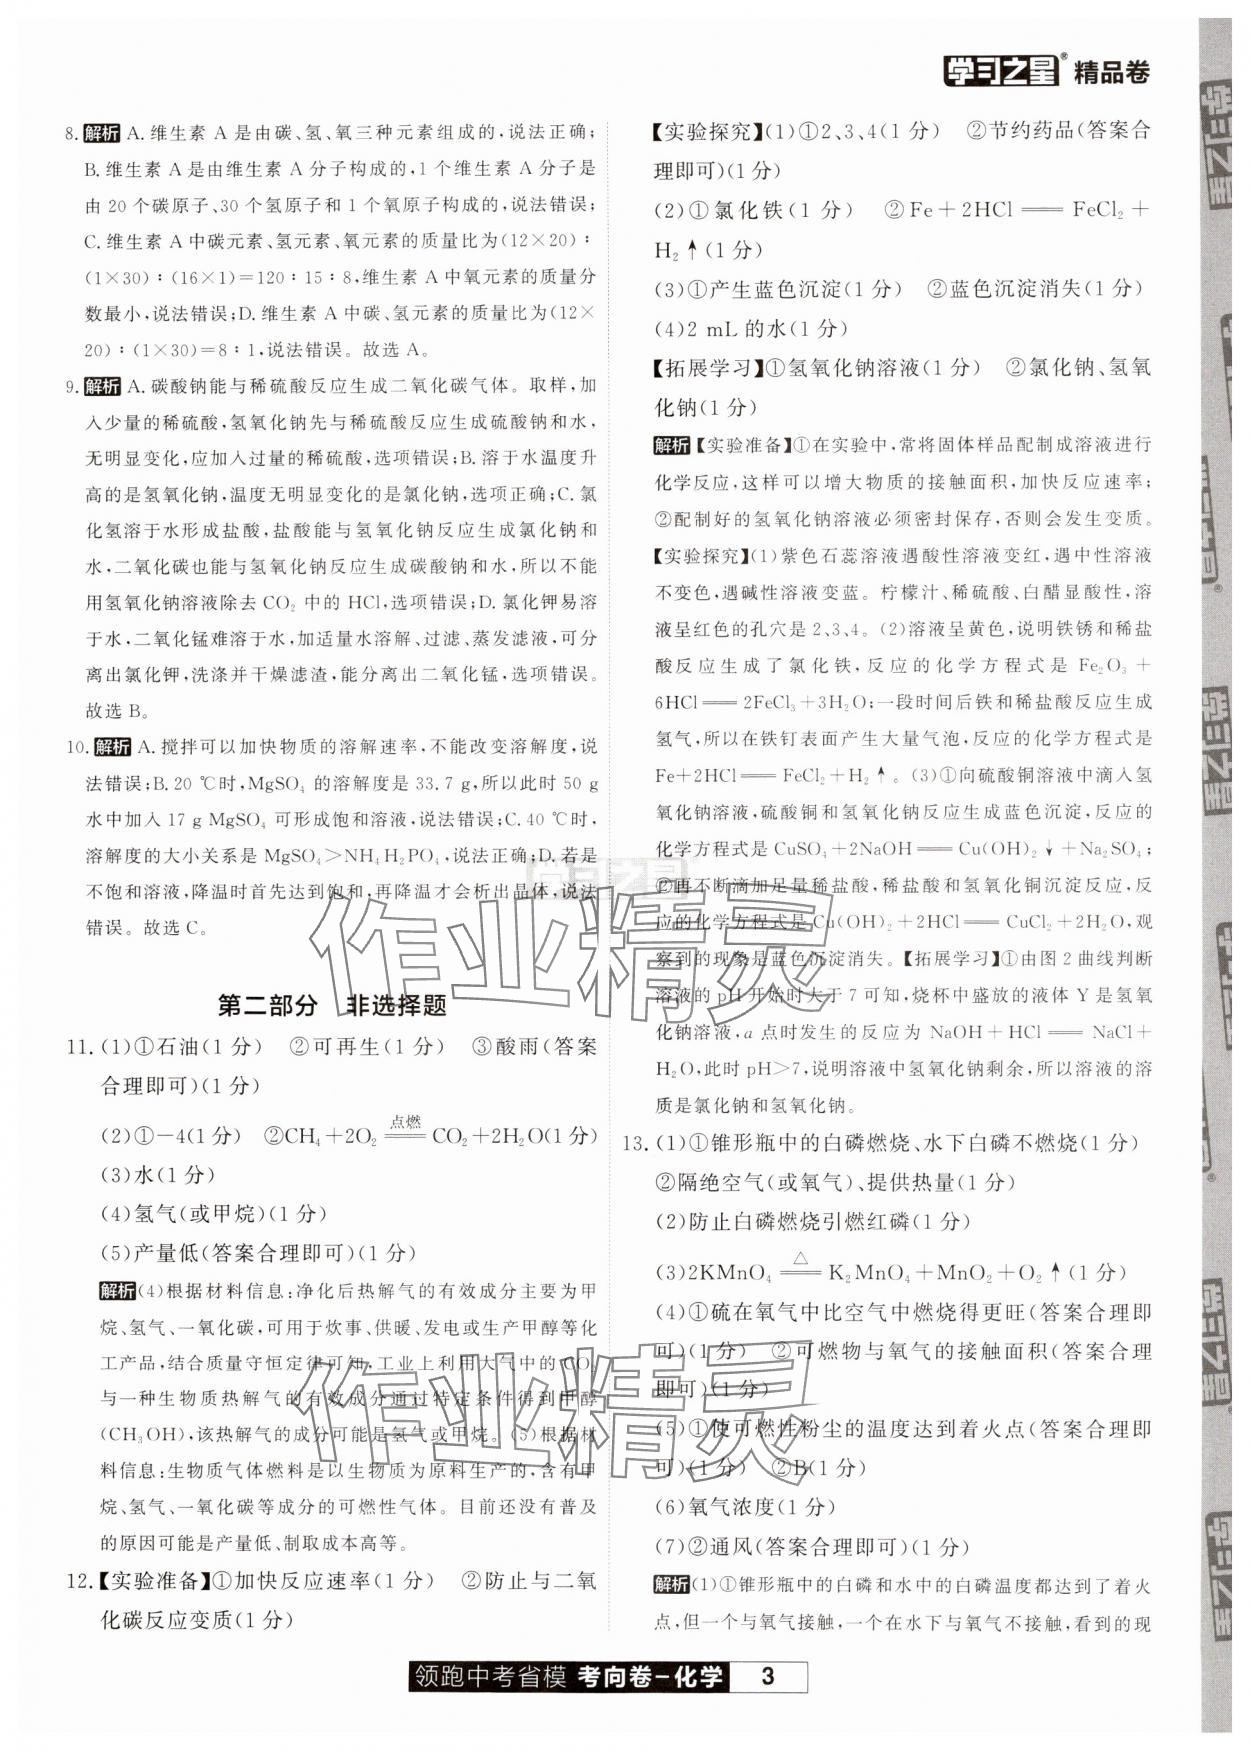 学习之星® 精品卷
8. 解析 A.维生素 A 是由碳、氢、氧三种元素组成的,说法正确;
B.维生素 A 是由维生素 A 分子构成的,1 个维生素 A 分子是
由 20 个碳原子、30 个氢原子和 1 个氧原子构成的,说法错误;
C.维生素 A 中碳元素、氢元素、氧元素的质量比为(12×20)∶
(1×30)∶(16×1)=120∶15∶8,维生素 A 中氧元素的质量分
数最小,说法错误;D.维生素 A 中碳、氢元素的质量比为(12×
20)∶(1×30)=8∶1,说法错误。故选 A。
9. 解析 A.碳酸钠能与稀硫酸反应生成二氧化碳气体。取样,加
入少量的稀硫酸,氢氧化钠先与稀硫酸反应生成硫酸钠和水,
无明显变化,应加入过量的稀硫酸,选项错误;B.溶于水温度升
高的是氢氧化钠,温度无明显变化的是氯化钠,选项正确;C.氯
化氢溶于水形成盐酸,盐酸能与氢氧化钠反应生成氯化钠和
水,二氧化碳也能与氢氧化钠反应生成碳酸钠和水,所以不能
用氢氧化钠溶液除去 CO₂ 中的 HCl,选项错误;D.氯化钾易溶
于水,二氧化锰难溶于水,加适量水溶解、过滤、蒸发滤液,可分
离出氯化钾,洗涤并干燥滤渣,能分离出二氧化锰,选项错误。
故选 B。
10. 解析 A.搅拌可以加快物质的溶解速率,不能改变溶解度,说
法错误;B.20 ℃时,MgSO₄ 的溶解度是 33.7 g,所以此时 50 g
水中加入 17 g MgSO₄ 可形成饱和溶液,说法错误;C.40 ℃时,
溶解度的大小关系是 MgSO₄>NH₄H₂PO₄,说法正确;D.若是
不饱和溶液,降温时首先达到饱和,再降温才会析出晶体,说法
错误。故选 C。
第二部分 非选择题
11. (1)①石油(1 分) ②可再生(1 分) ③酸雨(答案
合理即可)(1 分)
(2)①-4(1 分) ②CH₄+2O₂ 点燃══ CO₂+2H₂O(1 分)
(3)水(1 分)
(4)氢气(或甲烷)(1 分)
(5)产量低(答案合理即可)(1 分)
解析(4)根据材料信息:净化后热解气的有效成分主要为甲
烷、氢气、一氧化碳,可用于炊事、供暖、发电或生产甲醇等化
工产品,结合质量守恒定律可知,工业上利用大气中的 CO₂
与一种生物质热解气的有效成分通过特定条件得到甲醇
(CH₃OH),该热解气的成分可能是氢气或甲烷。(5)根据材
料信息:生物质气体燃料是以生物质为原料生产的,含有甲
烷、氢气、一氧化碳等成分的可燃性气体。目前还没有普及
的原因可能是产量低、制取成本高等。
12.【实验准备】①加快反应速率(1 分) ②防止与二氧
化碳反应变质(1 分)
【实验探究】(1)①2、3、4(1 分) ②节约药品(答案合
理即可)(1 分)
(2)①氯化铁(1 分) ②Fe+2HCl══FeCl₂+
H₂↑(1 分)
(3)①产生蓝色沉淀(1 分) ②蓝色沉淀消失(1 分)
(4)2 mL 的水(1 分)
【拓展学习】①氢氧化钠溶液(1 分) ②氯化钠、氢氧
化钠(1 分)
解析【实验准备】①在实验中,常将固体样品配制成溶液进行
化学反应,这样可以增大物质的接触面积,加快反应速率;
②配制好的氢氧化钠溶液必须密封保存,否则会发生变质。
【实验探究】(1)紫色石蕊溶液遇酸性溶液变红,遇中性溶液
不变色,遇碱性溶液变蓝。柠檬汁、稀硫酸、白醋显酸性,溶
液呈红色的孔穴是 2、3、4。(2)溶液呈黄色,说明铁锈和稀盐
酸反应生成了氯化铁,反应的化学方程式是 Fe₂O₃+
6HCl══2FeCl₃+3H₂O;一段时间后铁和稀盐酸反应生成
氢气,所以在铁钉表面产生大量气泡,反应的化学方程式是
Fe+2HCl══FeCl₂+H₂↑。(3)①向硫酸铜溶液中滴入氢
氧化钠溶液,硫酸铜和氢氧化钠反应生成蓝色沉淀,反应的
化学方程式是 CuSO₄+2NaOH══Cu(OH)₂↓+Na₂SO₄;
②再不断滴加足量稀盐酸,稀盐酸和氢氧化铜沉淀反应,反
应的化学方程式是 Cu(OH)₂+2HCl══CuCl₂+2H₂O,观
察到的现象是蓝色沉淀消失。【拓展学习】①由图 2 曲线判断
溶液的 pH 开始时大于 7 可知,烧杯中盛放的液体 Y 是氢氧
化钠溶液,a 点时发生的反应为 NaOH+HCl══NaCl+
H₂O,此时 pH>7,说明溶液中氢氧化钠剩余,所以溶液的溶
质是氯化钠和氢氧化钠。
13. (1)①锥形瓶中的白磷燃烧、水下白磷不燃烧(1 分)
②隔绝空气(或氧气)、提供热量(1 分)
(2)防止白磷燃烧引燃红磷(1 分)
(3)2KMnO₄ △══ K₂MnO₄+MnO₂+O₂↑(1 分)
(4)①硫在氧气中比空气中燃烧得更旺(答案合理即
可)(1 分) ②可燃物与氧气的接触面积(答案合理
即可)(1 分)
(5)①使可燃性粉尘的温度达到着火点(答案合理即
可)(1 分) ②B(1 分)
(6)氧气浓度(1 分)
(7)②通风(答案合理即可)(1 分)
解析(1)①锥形瓶中的白磷和水中的白磷温度都达到了着火
点,但一个与氧气接触,一个在水下与氧气不接触,看到的现
领跑中考省模 考向卷-化学 3
作业精灵
作业精灵
学习之星